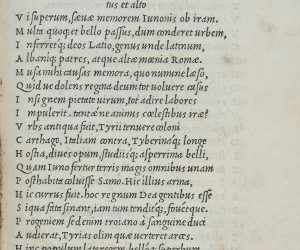 tus et alto
V i superum, sæuæ memorem Iunonis ob iram.
M ulta quoq; et bello passus, dum conderet urbem,
I nferretq; deos Latio, genus unde latinum,
A lbaniq; patres, atque altæ mœnia Romæ.
M usa mihi causas memora, quo numine læso,
Q uid ue dolens regina deum tot uoluere casus
I nsignem pietate uirum, tot adire labores
I mpulerit. tantæne animis cœlestibus iræ?
V rbs antiqua fuit, Tyrii tenuere coloni
C arthago, Italiam contra, Tyberinaq; longe
H ostia, diues opum, studiisq; asperrima belli,
Q uam Iuno fertur terris magis omnibus unam
P osthabita coluisse Samo. Hic illius arma,
H ic currus fuit. hoc regnum Dea gentibus esse
S i qua fata sinant, iam tum tenditq;, fouetque.
P rogeniem sed enim troiano à sanguine duci
A udierat, Tyrias olim quæ uerteret arces.
H inc populum late regem, belloq; superbum